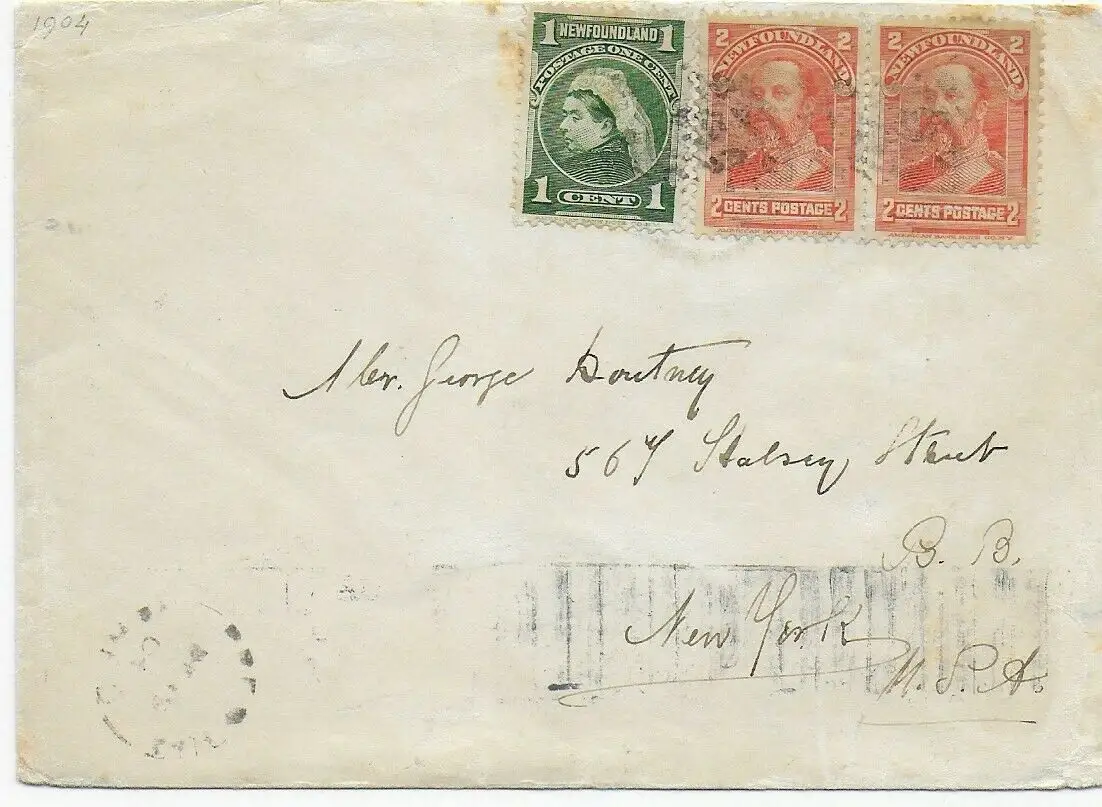 1904
1 NEWFOUNDLAND 1
POSTAGE ONE CENT
1 CENT 1
2 2
NEWFOUNDLAND
2 CENTS POSTAGE 2
AMERICAN BANK NOTE CO. N.Y.
2 2
NEWFOUNDLAND
2 CENTS POSTAGE 2
AMERICAN BANK NOTE CO. N.Y.
Mr. George
567 Street
B. B.
New York
U.S.A.